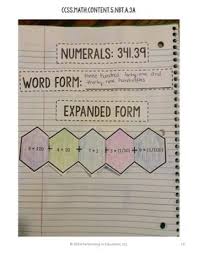 CCSS.MATH.CONTENT.5.NBT.A.3A
NUMERALS: 341.39
WORD FORM: three hundred forty-one and
thirty nine hundredths
EXPANDED FORM
3 x 100 + 4 x 10 + 1 x 1 + 3 x (1/10) + 9 x (1/100)